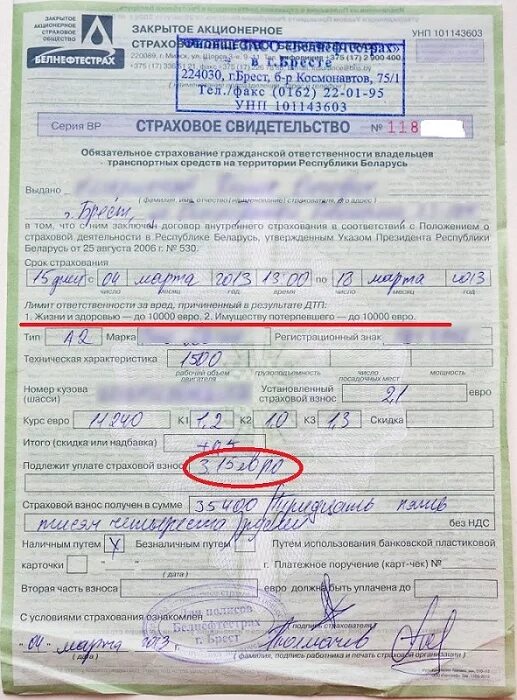 ЗАКРЫТОЕ АКЦИОНЕРНОЕ СТРАХОВОЕ ОБЩЕСТВО
БЕЛНЕФТЕСТРАХ
ЗАКРЫТОЕ АКЦИОНЕРНОЕ
СТРАХОВОЕ
УНП 101143603
ЗАСО «Белнефтестрах»
в г.Бресте
224030, г.Брест, б-р Космонавтов, 75/1
Тел./факс (0162) 22-01-95
УНП 101143603
Серия ВР СТРАХОВОЕ СВИДЕТЕЛЬСТВО № 118
Обязательное страхование гражданской ответственности владельцев
транспортных средств на территории Республики Беларусь
Выдано
(фамилия, имя, отчество (наименование) страхователя, его адрес)
г. Брест,
в том, что с ним заключен договор внутреннего страхования в соответствии с Положением о
страховой деятельности в Республике Беларусь, утвержденным Указом Президента Республики
Беларусь от 25 августа 2006 г. № 530.
Срок страхования
15 дней с 04 марта 2013 13:00 по 18 марта 2013
число месяц год часы число месяц год
Лимит ответственности за вред, причиненный в результате ДТП:
1. Жизни и здоровью — до 10000 евро, 2. Имуществу потерпевшего — до 10000 евро.
Тип А2 Марка Регистрационный знак
Техническая характеристика 1500
рабочий объем двигателя грузоподъемность количество посадочных мест мощность
Номер кузова (шасси) Установленный страховой взнос 2,1 евро
Курс евро 11240 К1 1,2 К2 1,0 К3 1,3 Скидка
Итого (скидка или надбавка)
Подлежит уплате страховой взнос 3,15 евро
Страховой взнос получен в сумме 35400 Тридцать пять
тысяч четыреста рублей без НДС
Наличным путем X Безналичным путем Путем использования банковской пластиковой
карточки г. Платежное поручение (карт-чек) №
(дата)
Вторая часть взноса евро должна быть уплачена до
С условиями страхования ознакомлен
подпись страхователя
Для полисов
Белнефтестрах
г. Брест
04 марта 2013
(дата) (фамилия, подпись работника и печать страховой организации)